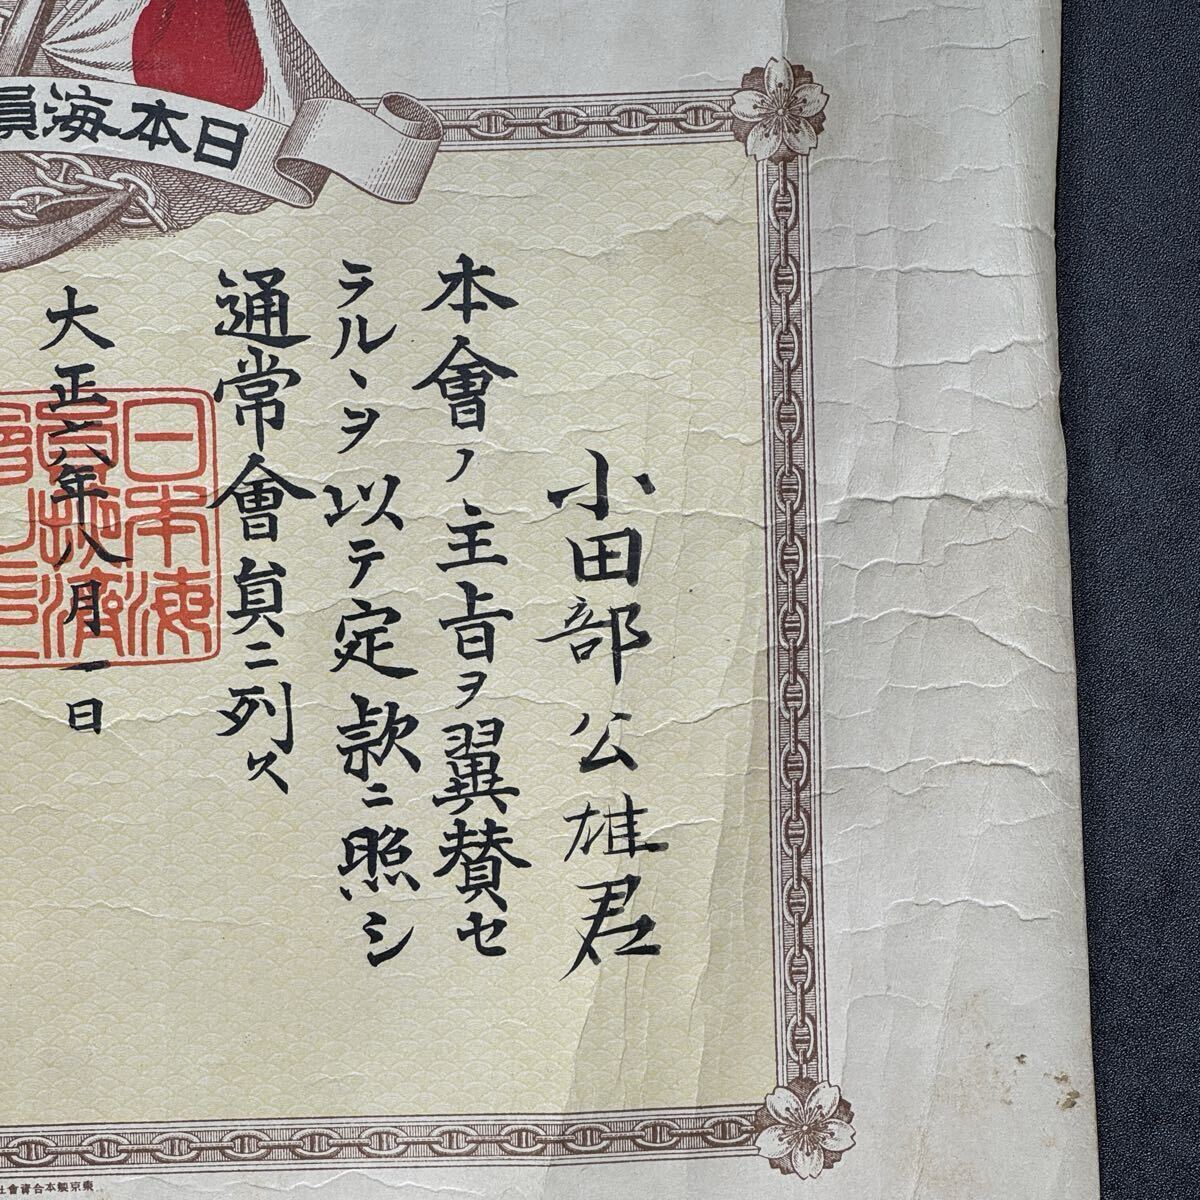 日本海員
小田部公雄君
本會ノ主旨ヲ翼賛セ
ラルヽヲ以テ定款ニ照シ
通常會員ニ列ス
大正六年八月一日
日本海
員掖濟
東京製本合資會社